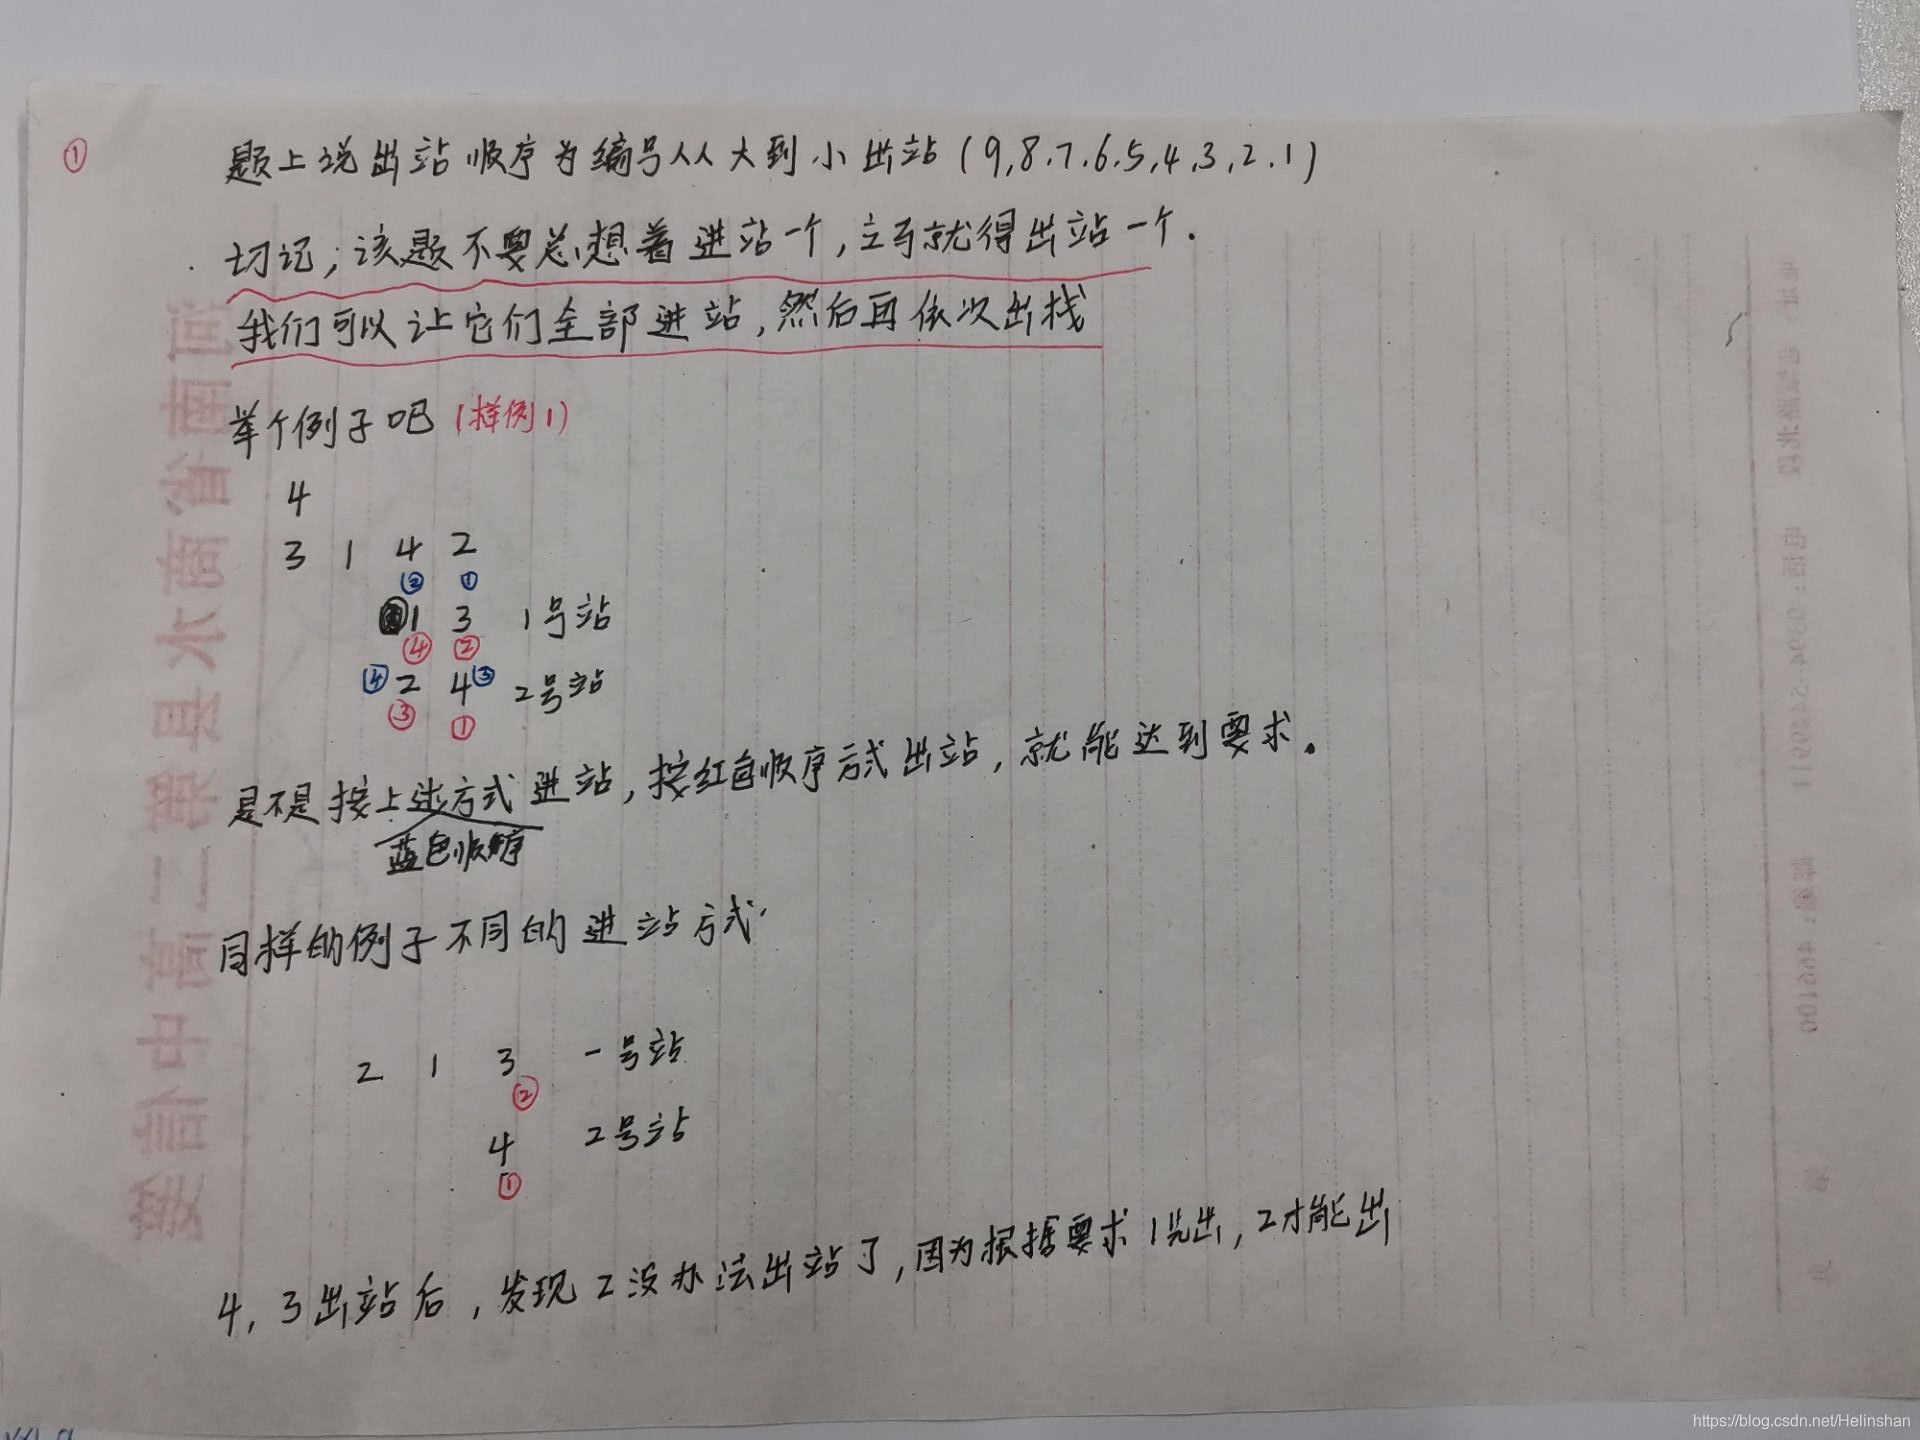 ①
题上说出站顺序为编号从大到小出站(9,8.7.6.5,4,3,2.1)
切记;该题不要总想着进站一个,立马就得出站一个.
我们可以让它们全部进站,然后再依次出栈
举个例子吧(样例1)
4
3 1 4 2
② ①
1 3 1号站
④ ②
④ 2 4 ③ 2号站
③ ①
是不是按上述方式进站,按红色顺序方式出站,就能达到要求。
蓝色顺序
同样的例子不同的进站方式
2 1 3 一号站
②
4 2号站
①
4,3出站后,发现2没办法出站了,因为根据要求1先出,2才能出
https://blog.csdn.net/Helinshan